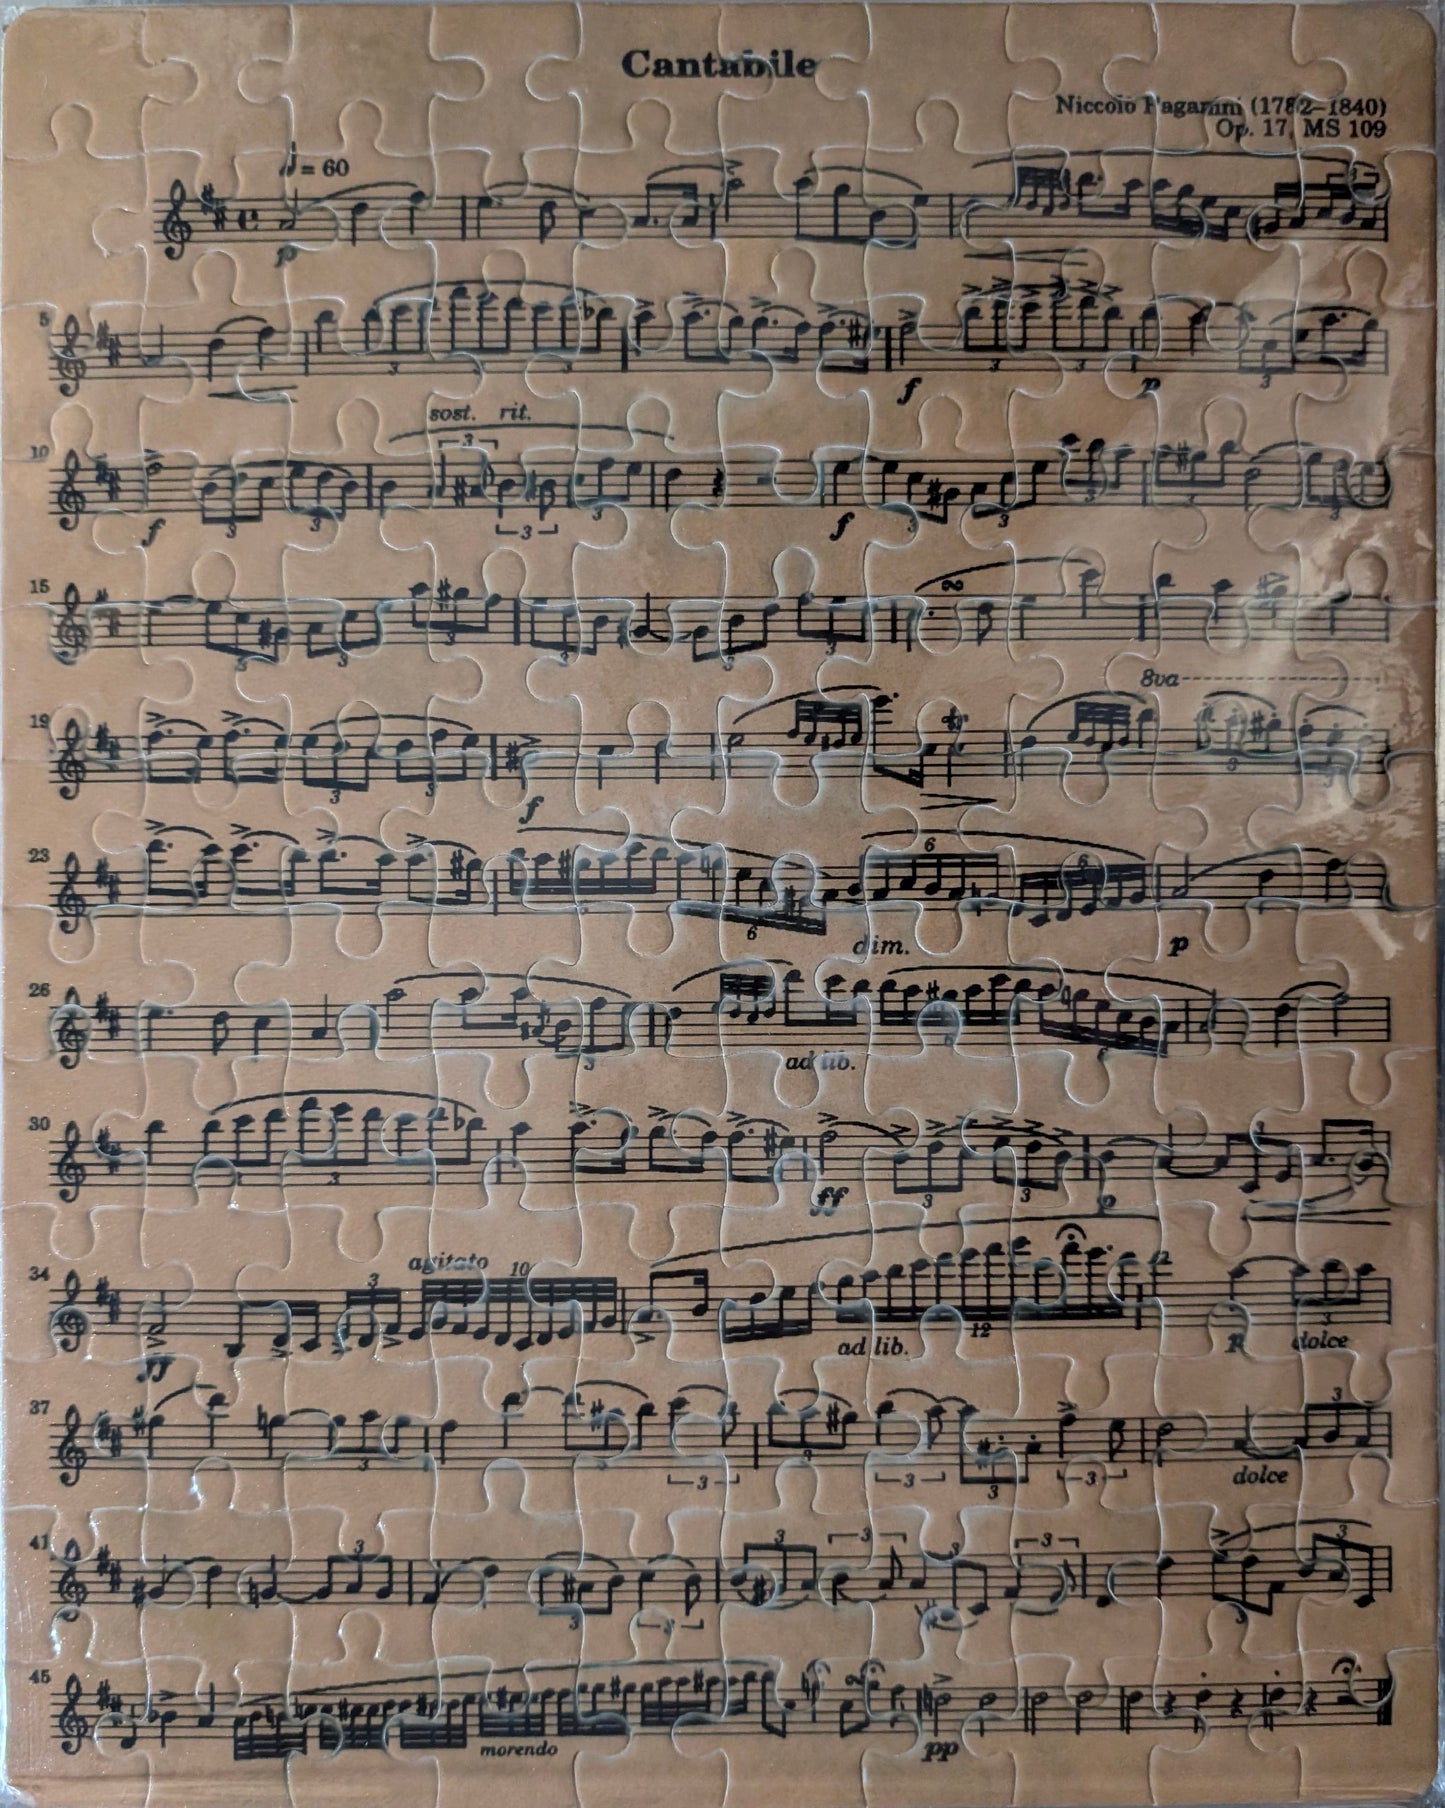 Cantabile
Niccolò Paganini (1782–1840)
Op. 17, MS 109
= 60
p
3
5
3 3 3 3 3
f p
3
sost. rit.
3
10
f 3 3 3 3 f 3 3 3 3 3
15
3 3 3 3 3
8va
19
3 3 tr 3 3
f
23
6 6
6
dim. p
26
3 6 6
ad lib.
30
3 3 3
ff p
34
agitato
3 10
12
ff ad lib. p dolce
3
37
3
3 3 3 3 3 3 3
dolce
41
3 3 3 3 3 3
3 3 3
45
morendo pp